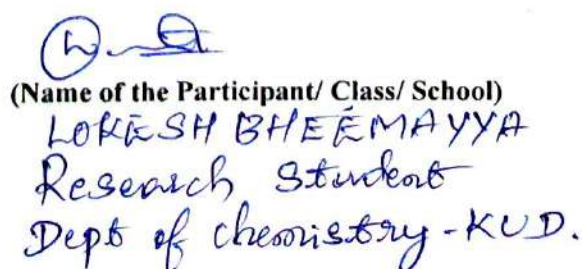 (Name of the Participant/ Class/ School)
LOKESH BHEEMAYYA
Research Student
Dept of chemistry - KUD.